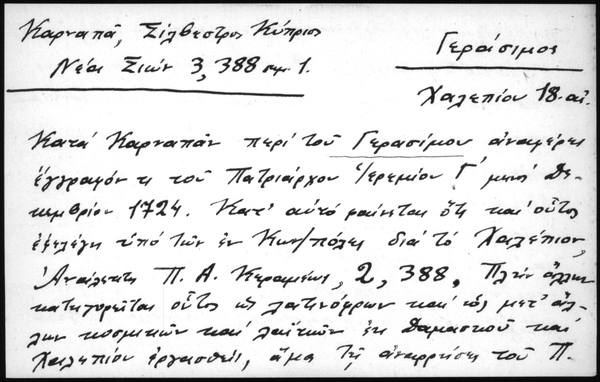 Καρναπᾶ, Σίλβεστρος Κύπριος
Γεράσιμος
Νέα Σιών 3, 388 σημ. 1.
Χαλεπίου 18. αἰ.
Κατά Καρναπᾶν περί τοῦ Γερασίμου ἀναφέρει
ἔγγραφόν τι τοῦ Πατριάρχου Ἱερεμίου Γ΄ μηνί Δε-
κεμβρίου 1724. Κατ' αὐτό φαίνεται ὅτι καί οὗτος
ἐξελέγη ὑπό τῶν ἐν Κων/πόλει διά τό Χαλέπιον,
Ἀνάλεκτα Π. Α. Κεραμέως, 2, 388. Πλήν ἄλλων
κατηγορεῖται οὗτος ὡς λατινόφρων καί ὡς μετ' ἄλ-
λων κοσμικῶν καί λαϊκῶν ἐκ Δαμασκοῦ καί
Χαλεπίου ἐργασθείς, ἅμα τῇ ἀναρρήσει τοῦ Π.